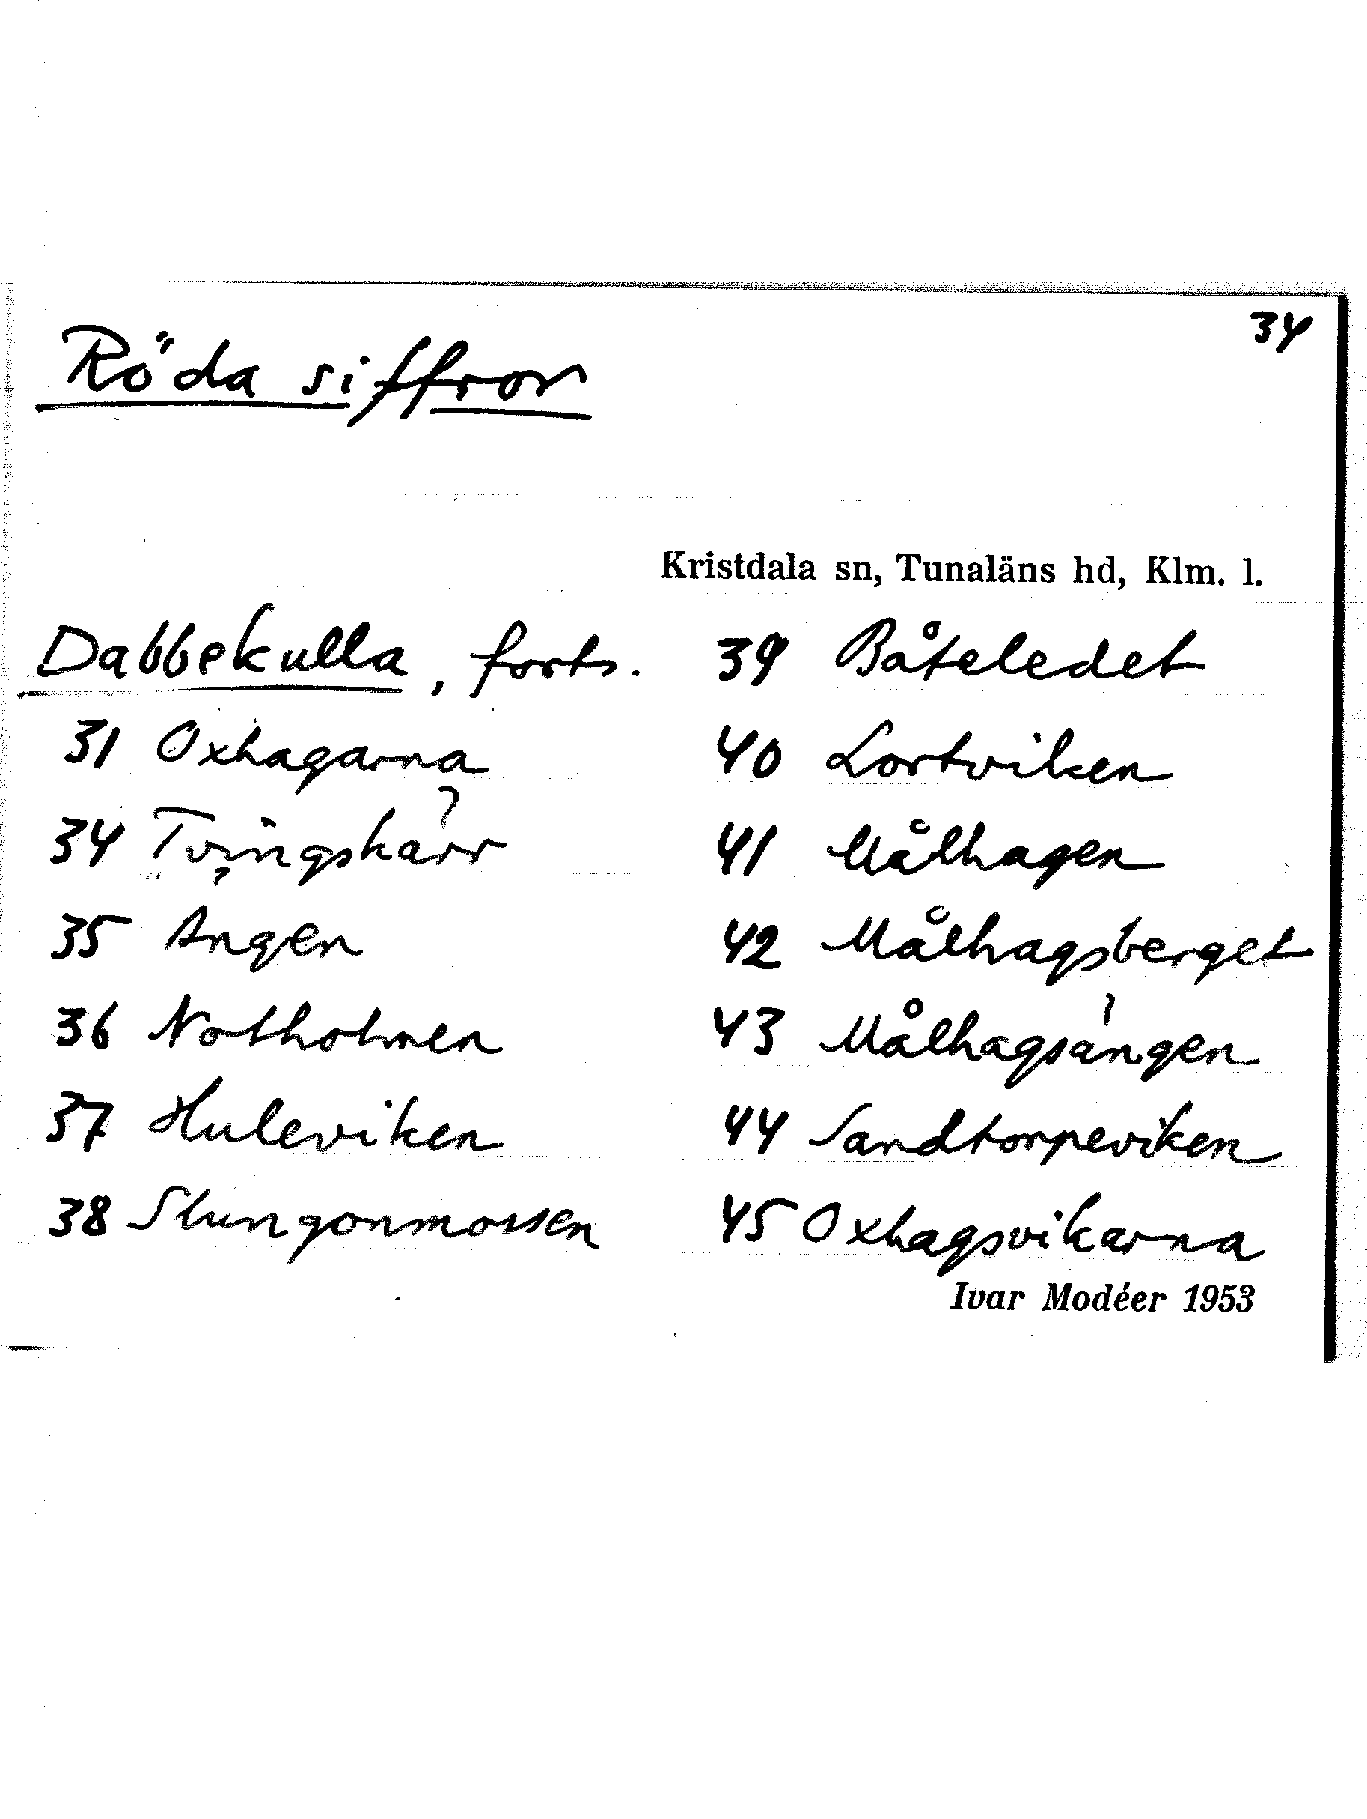 34
Röda siffror
Kristdala sn, Tunaläns hd, Klm. l.
Dabbekulla, forts.
31 Oxhagarna
34 Tvingskärr
35 Ängen
36 Notholmen
37 Huleviken
38 Slungonmossen
39 Båteledet
40 Lortviken
41 Målhagen
42 Målhagsberget
43 Målhagsängen
44 Sandtorpeviken
45 Oxhagsvikarna
Ivar Modéer 1953